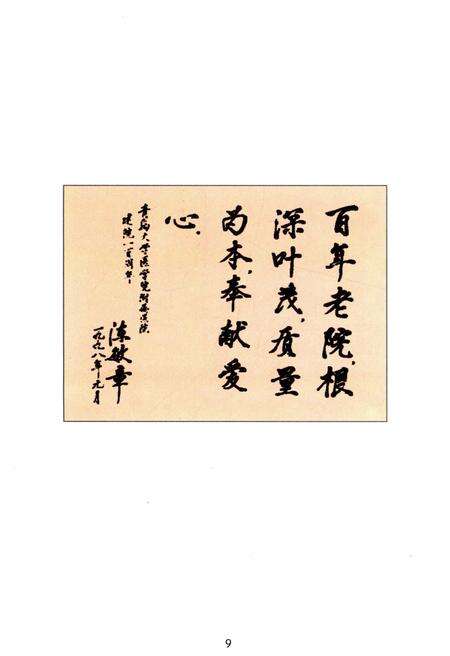 百年老院,根
深叶茂,质量
为本,奉献爱
心.
青岛大学医学院附属医院
建院一百周年
陈敏章
一九九八年元月
9